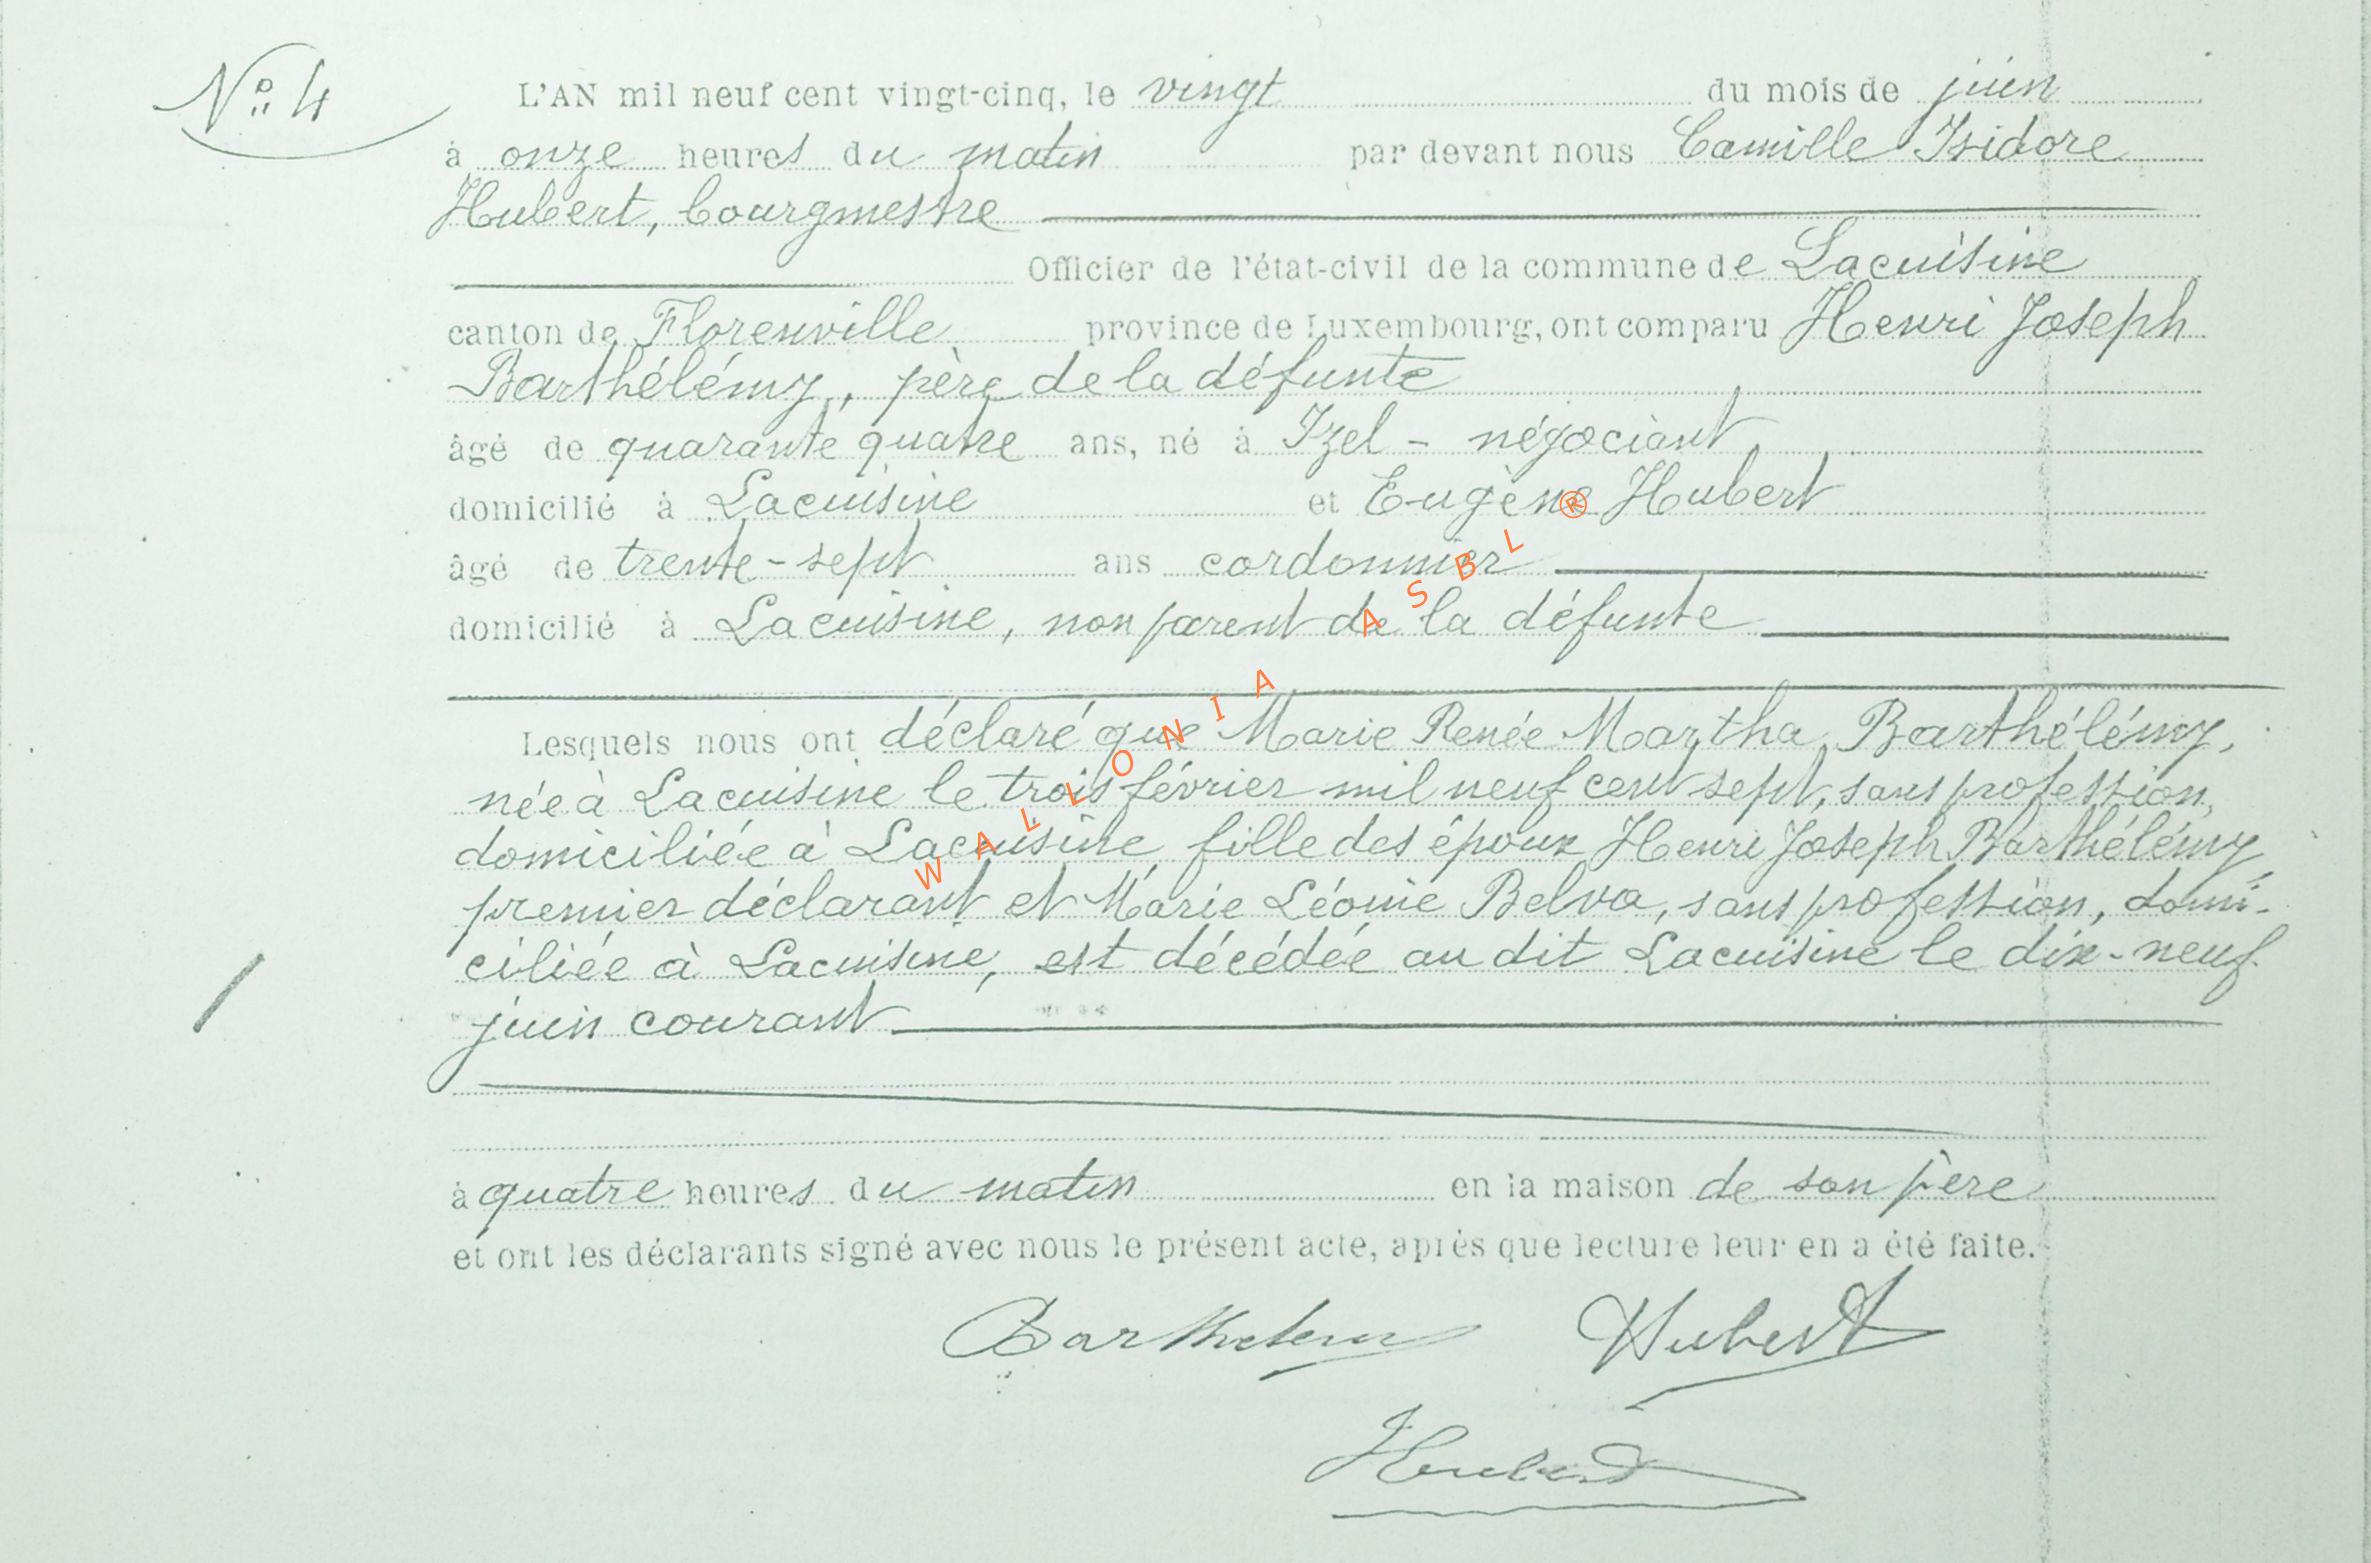 N° 4
L'AN mil neuf cent vingt-cinq, le vingt du mois de juin
à onze heures du matin par devant nous Camille Isidore
Hubert, bourgmestre
Officier de l'état-civil de la commune de Lacuisine
canton de Florenville province de Luxembourg, ont comparu Henri Joseph
Barthélémy, père de la défunte
âgé de quarante quatre ans, né à Izel - négociant
domicilié à Lacuisine et Eugène Hubert
âgé de trente-sept ans cordonnier
domicilié à Lacuisine, non parent de la défunte
Lesquels nous ont déclaré que Marie Renée Martha Barthélémy,
née à Lacuisine le trois février mil neuf cent sept, sans profession,
domiciliée à Lacuisine, fille des époux Henri Joseph Barthélémy,
premier déclarant et Marie Léonie Belva, sans profession, domi-
ciliée à Lacuisine, est décédée au dit Lacuisine le dix-neuf
juin courant
à quatre heures du matin en la maison de son père
et ont les déclarants signé avec nous le présent acte, après que lecture leur en a été faite.
Barthelemy Hubert
Hubert
WALLONIA ASBL ®